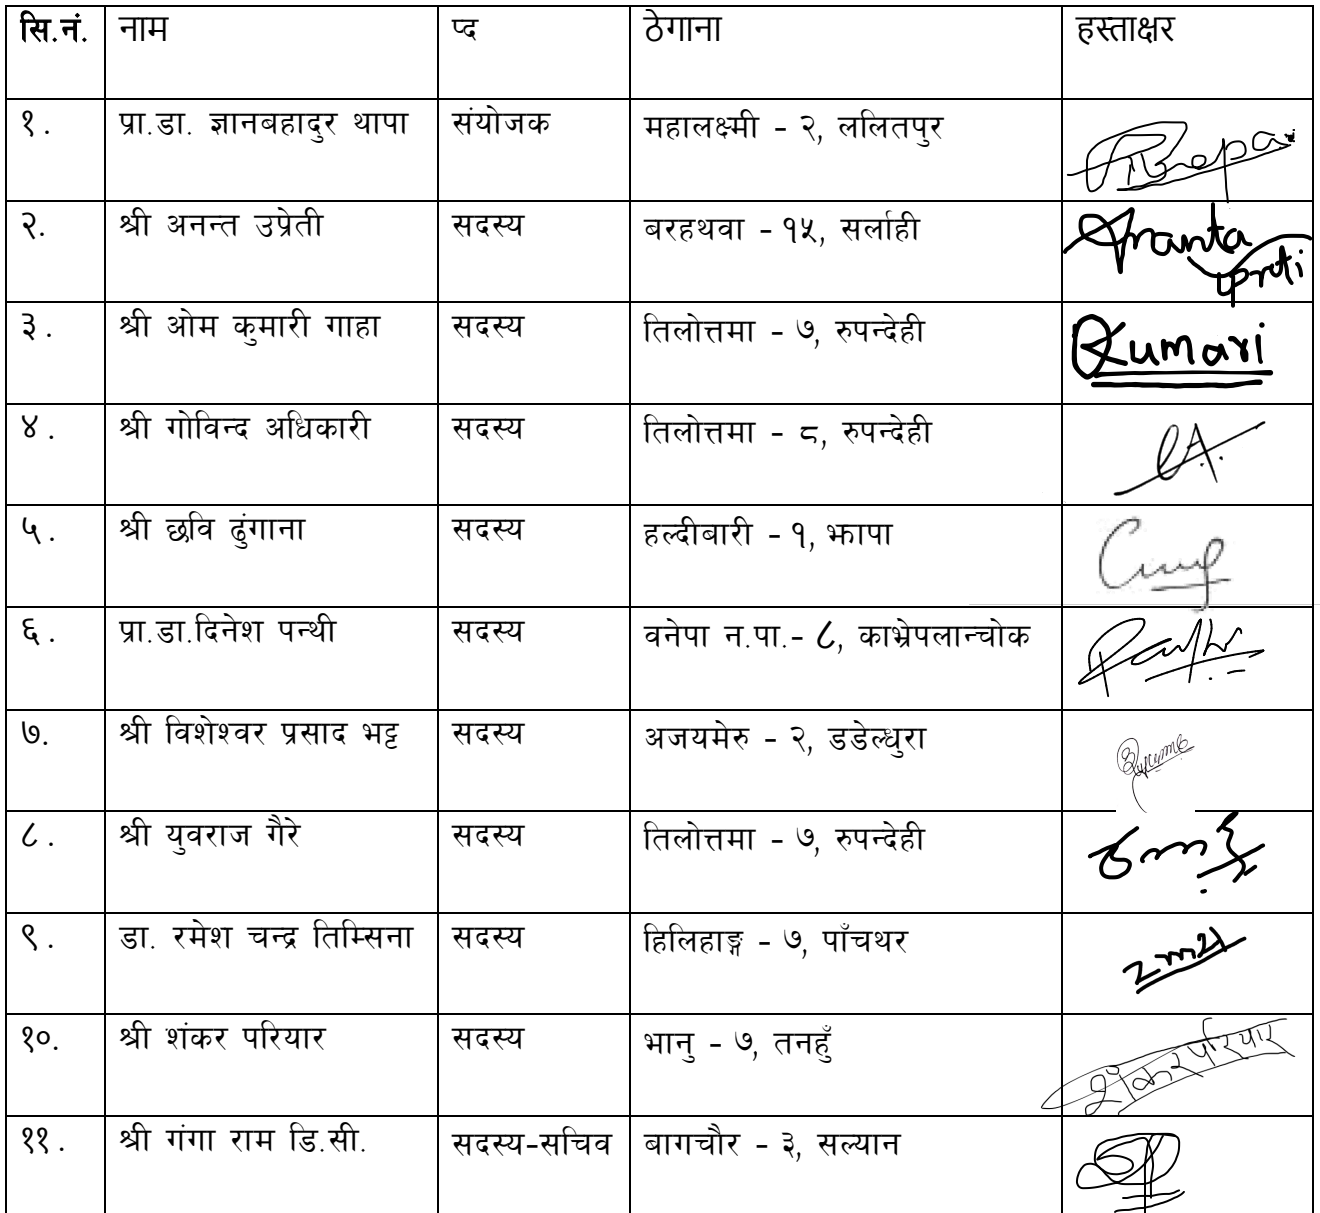 सि.नं. नाम प्द ठेगाना हस्ताक्षर
१. प्रा.डा. ज्ञानबहादुर थापा संयोजक महालक्ष्मी - २, ललितपुर
२. श्री अनन्त उप्रेती सदस्य बरहथवा - १५, सर्लाही Ananta Upreti
३. श्री ओम कुमारी गाहा सदस्य तिलोत्तमा - ७, रुपन्देही Kumari
४. श्री गोविन्द अधिकारी सदस्य तिलोत्तमा - ८, रुपन्देही
५. श्री छवि ढुंगाना सदस्य हल्दीबारी - १, झापा
६. प्रा.डा.दिनेश पन्थी सदस्य वनेपा न.पा.- ८, काभ्रेपलान्चोक
७. श्री विशेश्वर प्रसाद भट्ट सदस्य अजयमेरु - २, डडेल्धुरा
८. श्री युवराज गैरे सदस्य तिलोत्तमा - ७, रुपन्देही
९. डा. रमेश चन्द्र तिम्सिना सदस्य हिलिहाङ्ग - ७, पाँचथर
१०. श्री शंकर परियार सदस्य भानु - ७, तनहुँ शंकर परियार
११. श्री गंगा राम डि.सी. सदस्य-सचिव बागचौर - ३, सल्यान